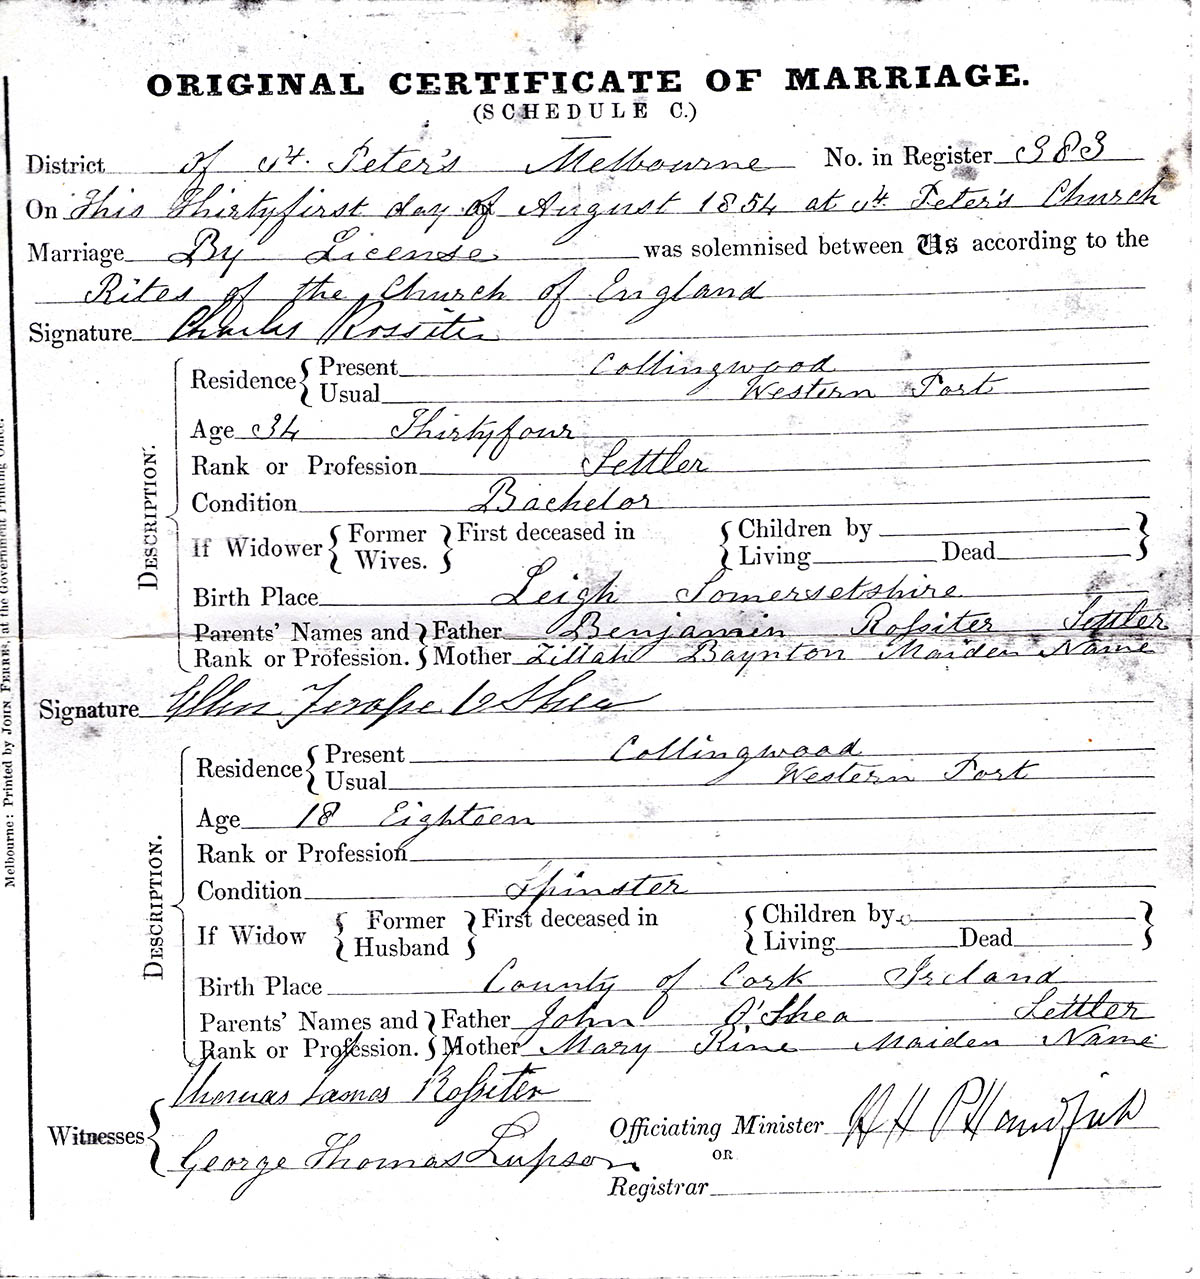 ORIGINAL CERTIFICATE OF MARRIAGE.
(SCHEDULE C.)
District of St. Peter's Melbourne No. in Register 383
On This Thirtyfirst day of August 1854 at St. Peter's Church
Marriage By License was solemnised between Us according to the
Rites of the Church of England
Signature Charles Rossiter
Residence { Present Collingwood
Usual Western Port
Age 34 Thirtyfour
Rank or Profession Settler
Condition Bachelor
If Widower { Former Wives. } First deceased in { Children by
Living Dead }
Birth Place Leigh Somersetshire
Parents' Names and } Father Benjamin Rossiter Settler
Rank or Profession. } Mother Zillah Baynton Maiden Name
DESCRIPTION.
Signature Ellen O'Shea
Residence { Present Collingwood
Usual Western Port
Age 18 Eighteen
Rank or Profession
Condition Spinster
If Widow { Former Husband } First deceased in { Children by
Living Dead }
Birth Place County of Cork Ireland
Parents' Names and } Father John O'Shea Settler
Rank or Profession. } Mother Mary Rine Maiden Name
DESCRIPTION.
Thomas James Rossiter
Witnesses {
George Thomas Lupson
Officiating Minister H H P Handfield
OR
Registrar
Melbourne: Printed by JOHN FERRES, at the Government Printing Office.